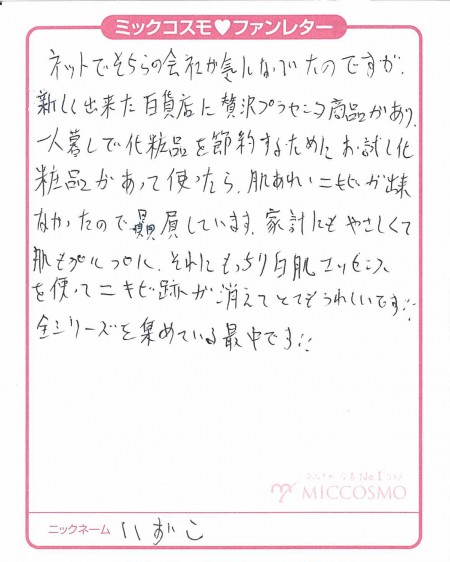 ミックコスモ♥ファンレター
ネットでそちらの会社が気になっていたのですが、
新しく出来た百貨店に贅沢プラセンタ商品があり、
一人暮しで化粧品を節約するためにお試し化
粧品があって使ったら、肌あれ、ニキビが出来
なかったので贔屓しています。家計にもやさしくて
肌もプルプルに、それにもっちり白肌エッセンス
を使ってニキビ跡が消えてとてもうれしいです!!
全シリーズを集めている最中です!!
みなさまの No.1 コスメ
MICCOSMO
ニックネーム